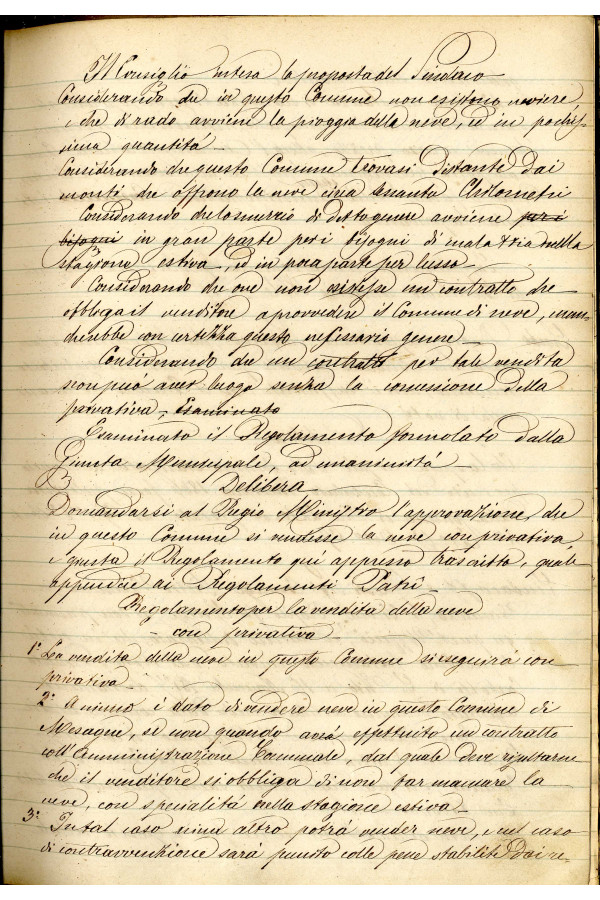 Il Consiglio Intesa la proposta del Sindaco
Considerando che in questo Comune non esistono neviere,
e che di rado avviene la pioggia della neve, ed in pochis-
sima quantità
Considerando che questo Comune trovasi distante dai
monti che offrono la neve circa sessanta Chilometri
Considerando che lo smercio di detto genere avviene per i
bisogni in gran parte per i bisogni di malattia nella
stagione estiva, ed in poca parte per lusso
Considerando che ove non esistesse un contratto che
obbliga il venditore a provvedere il Comune di neve, man-
cherebbe con certezza questo necessario genere
Considerando che un contratto per tale vendita
non può aver luogo senza la concessione della
privativa. Esaminato
Esaminato il Regolamento formolato dalla
Giunta Municipale, ad unanimità
Delibera
Domandarsi al Regio Ministro l'approvazione, che
in questo Comune si vendesse la neve con privativa,
e giusta il Regolamento qui appresso trascritto, quale
appendice ai Regolamenti Patrî
Regolamento per la vendita della neve
- con privativa -
1° La vendita della neve in questo Comune si eseguirà con
privativa
2° A niuno è dato di vendere neve in questo Comune di
Mesagne, se non quando avrà effettuito un contratto
coll'Amministrazione Comunale, dal quale deve risultarne
che il venditore si obbliga di non far mancare la
neve, con specialità nella stagione estiva
3° In tal caso niun altro potrà vender neve, e nel caso
di contravvenzione sarà punito colle pene stabilite dai re-